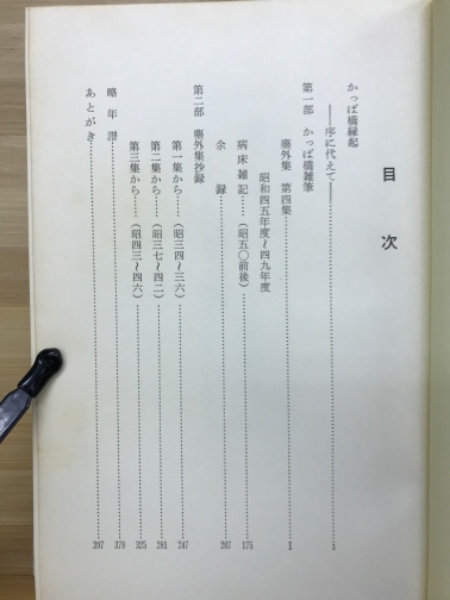 目次
かっぱ橋縁起
――序に代えて――……1
第一部 かっぱ橋雑筆
塵外集 第四集……1
昭和四五年度~四九年度
病床雑記……(昭五〇前後)……175
余録……207
第二部 塵外集抄録
第一集から……(昭三四~三六)……247
第二集から……(昭三七~四二)……281
第三集から……(昭四三~四六)……325
略年譜……378
あとがき……397